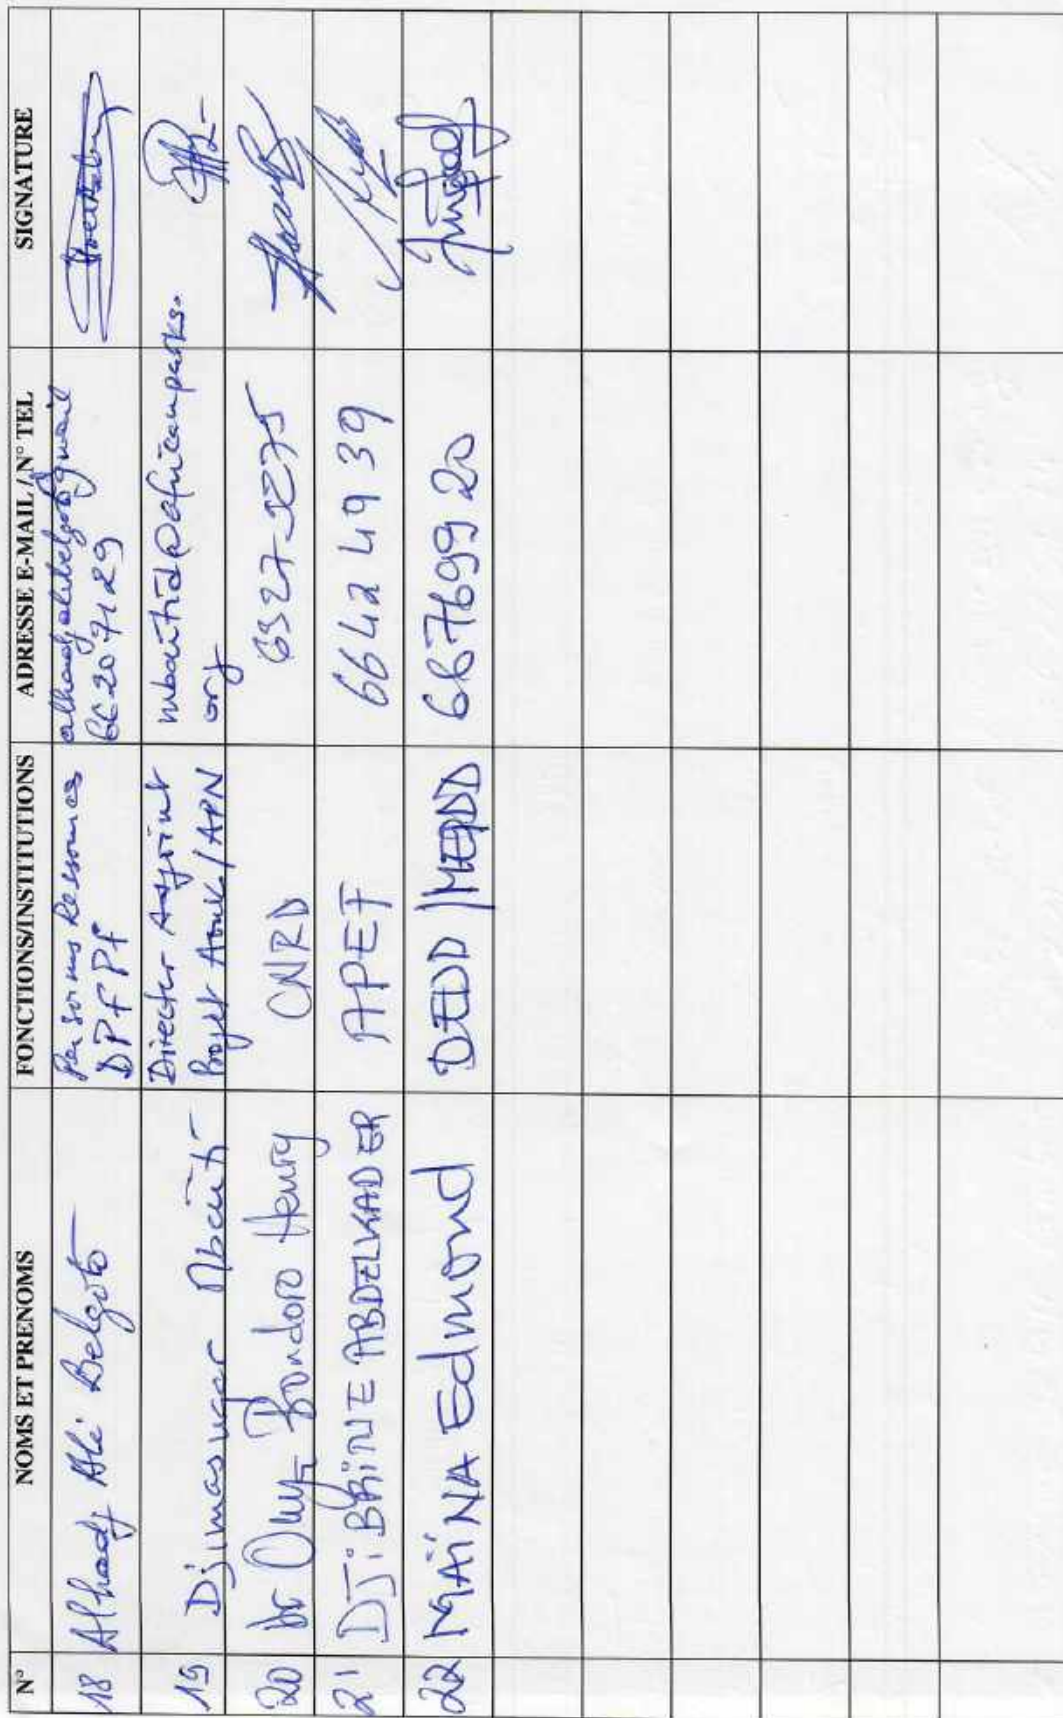 N° NOMS ET PRENOMS FONCTIONS/INSTITUTIONS ADRESSE E-MAIL / N° TEL SIGNATURE
18 Alhadj Ali Belgoto Personnes Ressources
DPFPF
66 20 71 29
19 Djimasngar Mbaiti Director Adjoint
Projet Aouk/APN mbaitid@africanparks.
org
20 Dr Bondoro Henry CNRD 6327-3275
21 DJiBRiNE ABDELKADER APET 66424939
22 MAÏNA Edmond DEDD/MERDD 66769920